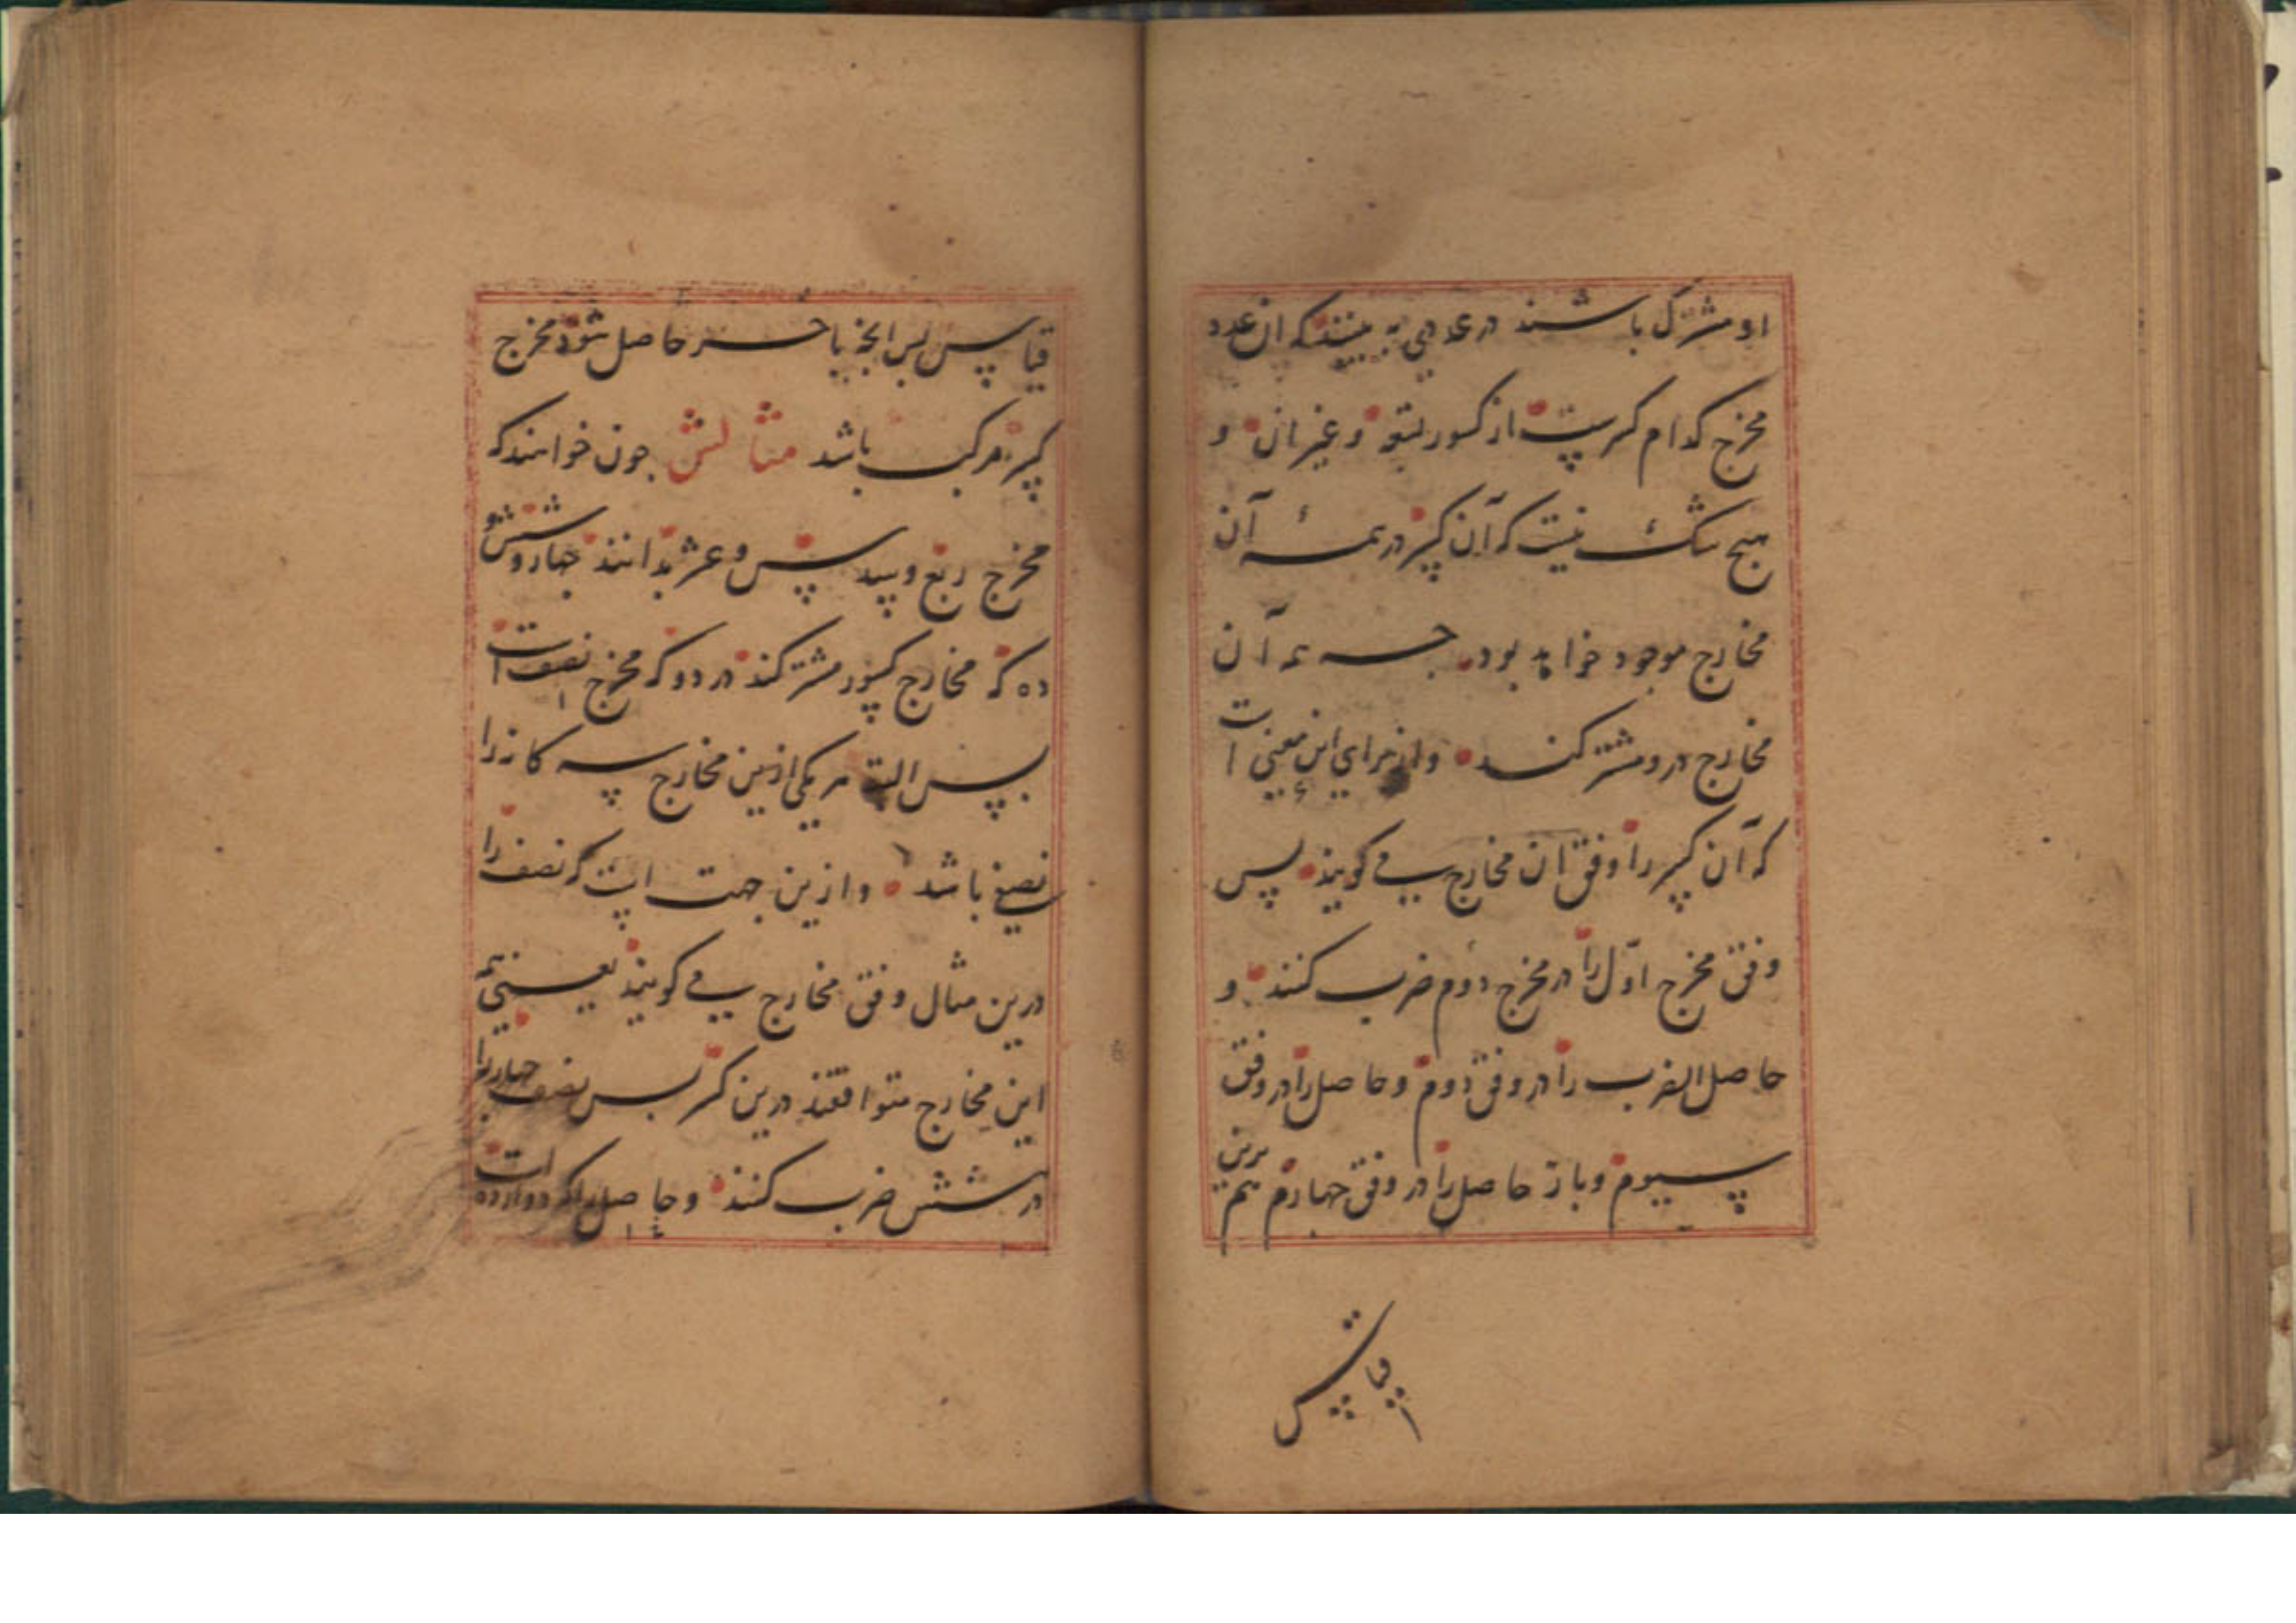 او مشترک باشند در عددی ببینند که ان عدد
مخرج کدام کسرست از کسور تسعه و غیر ان و
هیچ شک نیست که آن کسر در همهٔ آن
مخارج موجود خواهد بود چه همه آن
مخارج درو مشترکند و از برای این معنی است
که آن کسر را وفق ان مخارج می کویند پس
وفق مخرج اوّل را در مخرج دوم ضرب کنند و
حاصل الضرب را در وفق دوم و حاصل را در وفق
سیوم و باز حاصل را در وفق چهارم هم برین
قیاس
قیاس پس انچه باخر حاصل شود مخرج
کسر مرکب باشد مثالش چون خواهند که
مخرج ربع و سدس و عشر بدانند چهار و شش و
ده که مخارج کسور مشترکند در دو که مخرج نصف است
پس البته هر یکی ازین مخارج سه کانه را
نصفی باشد و ازین جهت است که نصف را
درین مثال وفق مخارج می کویند یعنی
این مخارج متوافقند درین کسر پس نصف چهار را
در شش ضرب کنند و حاصل را که دوازده است